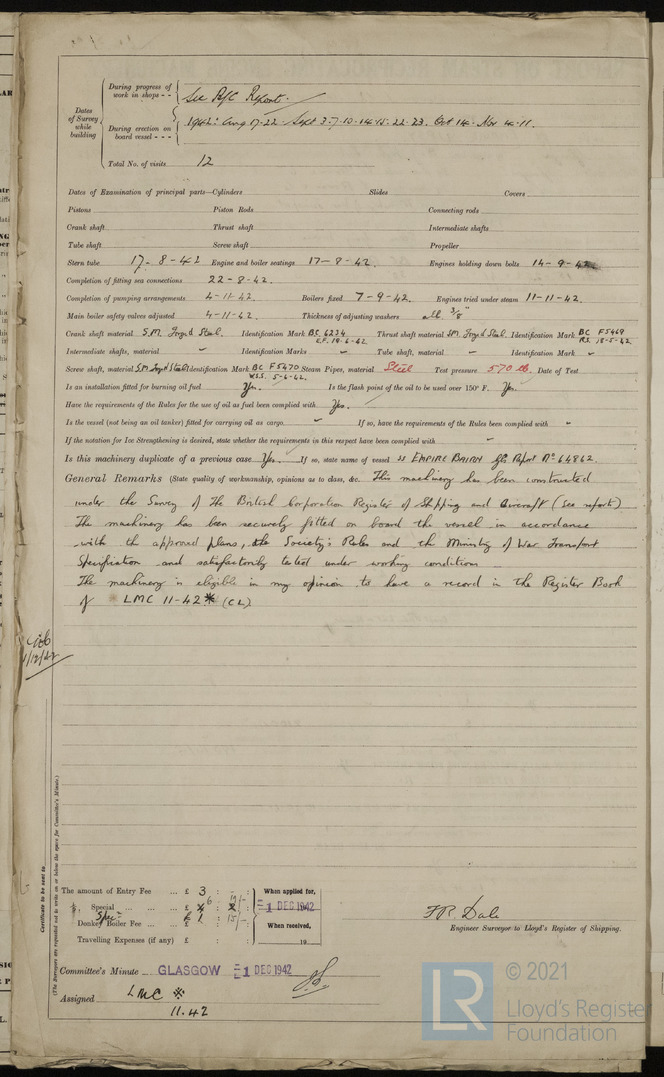 Dates of Survey while building
During progress of work in shops - - See B/C Report.
During erection on board vessel - - - 1942: Aug 17. 22. Sept 3. 7. 10. 14. 15. 22. 23. Oct 14. Nov 4. 11.
Total No. of visits 12
Dates of Examination of principal parts—Cylinders Slides Covers
Pistons Piston Rods Connecting rods
Crank shaft Thrust shaft Intermediate shafts
Tube shaft Screw shaft Propeller
Stern tube 17-8-42 Engine and boiler seatings 17-8-42. Engines holding down bolts 14-9-42
Completion of fitting sea connections 22-8-42.
Completion of pumping arrangements 4-11-42. Boilers fixed 7-9-42. Engines tried under steam 11-11-42.
Main boiler safety valves adjusted 4-11-42. Thickness of adjusting washers all 3/8"
Crank shaft material S.M. Forged Steel. Identification Mark BC 6234 Thrust shaft material SM. Forgd Steel. Identification Mark BC F5469
Intermediate shafts, material Identification Marks Tube shaft, material Identification Mark
Screw shaft, material S.M Forgd Steel Identification Mark BC F5470 5-6-42. Steam Pipes, material Steel Test pressure 570 lb. Date of Test
Is an installation fitted for burning oil fuel Yes. Is the flash point of the oil to be used over 150° F. Yes.
Have the requirements of the Rules for the use of oil as fuel been complied with Yes.
Is the vessel (not being an oil tanker) fitted for carrying oil as cargo If so, have the requirements of the Rules been complied with
If the notation for Ice Strengthening is desired, state whether the requirements in this respect have been complied with
Is this machinery duplicate of a previous case Yes. If so, state name of vessel SS EMPIRE BAIRN Gls Report No 64862.
General Remarks (State quality of workmanship, opinions as to class, &c. This machinery has been constructed
under the Survey of The British Corporation Register of Shipping and Aircraft (see reports)
The machinery has been securely fitted on board the vessel in accordance
with the approved plans, the Society's Rules and the Ministry of War Transport
Specification and satisfactorily tested under working conditions
The machinery is eligible in my opinion to have a record in the Register Book
of LMC 11-42 * (CL)
Certificate to be sent to
(The Surveyors are requested not to write on or below the space for Committee's Minute.)
The amount of Entry Fee ... £ 3 : When applied for,
Special ... ... £ 1 DEC 1942
Donkey Boiler Fee ... £ When received,
Travelling Expenses (if any) £ : 19
F.R. Dale
Engineer Surveyor to Lloyd's Register of Shipping.
Committee's Minute GLASGOW 1 DEC 1942
Assigned LMC *
11.42
LR
© 2021
Lloyd's Register
Foundation